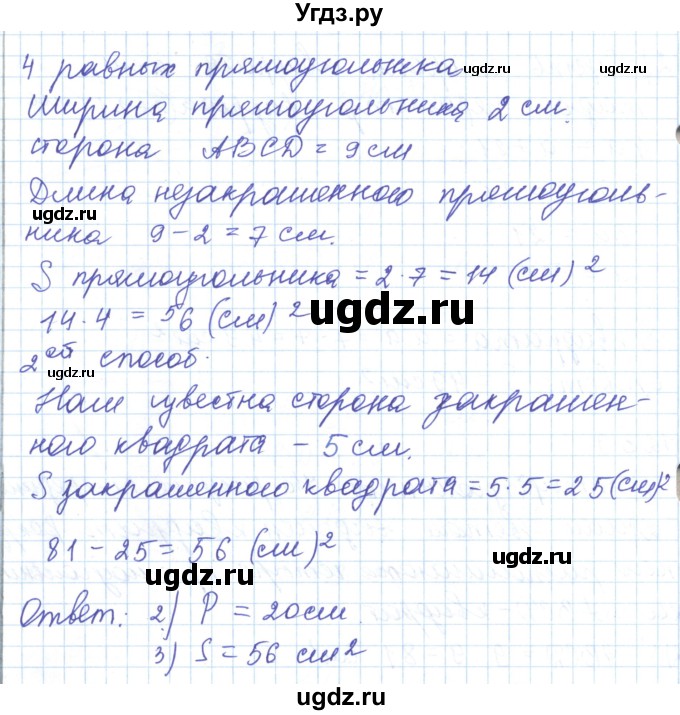 Угдз.ру
4 равных прямоугольника
ugdz.ru ugdz.ru
Ширина прямоугольника 2 см.
сторона ABCD = 9 см
Длина незакрашенного прямоуголь-
ugdz.ru
ника 9 - 2 = 7 см.
S прямоугольника = 2 · 7 = 14 (см)2
14 · 4 = 56 (см)2
ugdz.ru
2ой способ.
ugdz.ru
Нам известна сторона закрашен-
ного квадрата - 5 см.
S закрашенного квадрата = 5 · 5 = 25 (см)2
81 - 25 = 56 (см)2
ugdz.ru
Ответ: 2) P = 20 см
ugdz.ru
3) S = 56 см2
ugdz.ru
ugdz.ru